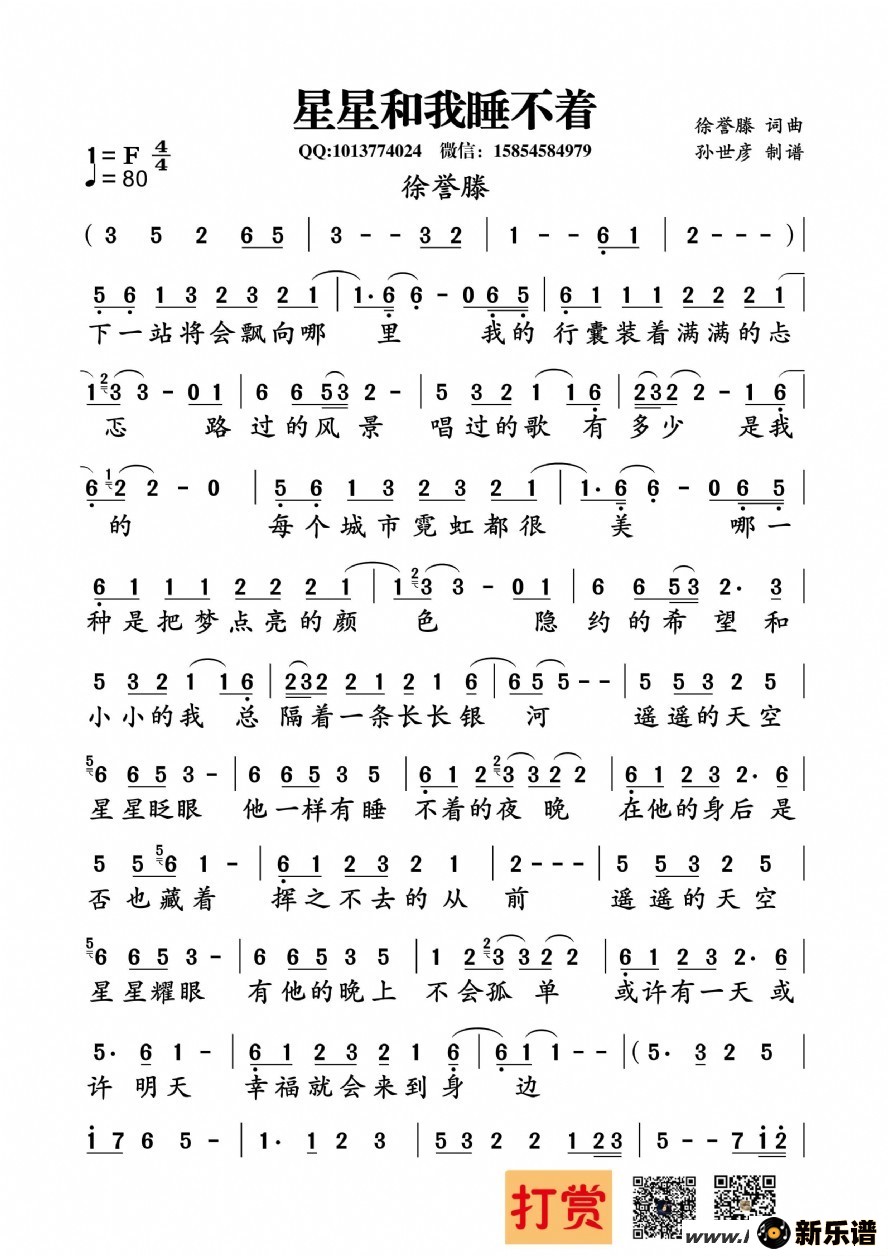 星星和我睡不着
QQ:1013774024 微信：15854584979
徐誉滕 词曲
孙世彦 制谱
1=F 4/4
♩=80
徐誉滕
( 3 5 2 6 5 | 3 - - 3 2 | 1 - - 6 1 | 2 - - - ) |
5 6 1 3 2 3 2 1 | 1· 6 6 - 0 6 5 | 6 1 1 1 2 2 2 1
下一站将会飘向哪 里 我的 行囊装着满满的忐
1 2 3 3 - 0 1 | 6 6 5 3 2 - | 5 3 2 1 1 6 | 2 3 2 2 - 1 6
忑 路 过的风景 唱过的歌 有多少 是我
6 1 2 2 - 0 | 5 6 1 3 2 3 2 1 | 1· 6 6 - 0 6 5 |
的 每个城市霓虹都很 美 哪一
6 1 1 1 2 2 2 1 | 1 2 3 3 - 0 1 | 6 6 5 3 2· 3 |
种是把梦点亮的颜 色 隐 约的希望和
5 3 2 1 1 6 | 2 3 2 2 1 2 1 6 | 6 5 5 - - | 5 5 3 2 5 |
小小的我 总 隔着一条长长银 河 遥遥的天空
5 6 6 5 3 - | 6 6 5 3 5 | 6 1 2 2 3 3 2 2 | 6 1 2 3 2· 6 |
星星眨眼 他一样有睡 不着的夜晚 在他的身后是
5 5 5 6 1 - | 6 1 2 3 2 1 | 2 - - - | 5 5 3 2 5 |
否也藏着 挥之不去的从 前 遥遥的天空
5 6 6 5 3 - | 6 6 5 3 5 | 1 2 2 3 3 2 2 | 6 1 2 3 2· 6 |
星星耀眼 有他的晚上 不会孤单 或许有一天或
5· 6 1 - | 6 1 2 3 2 1 6 | 6 1 1 - - | ( 5· 3 2 5 |
许 明天 幸福就会来到身 边
1 7 6 5 - | 1· 1 2 3 | 5 3 2 2 1 2 3 | 5 - - 7 1 2 |
打赏
www.
新乐谱